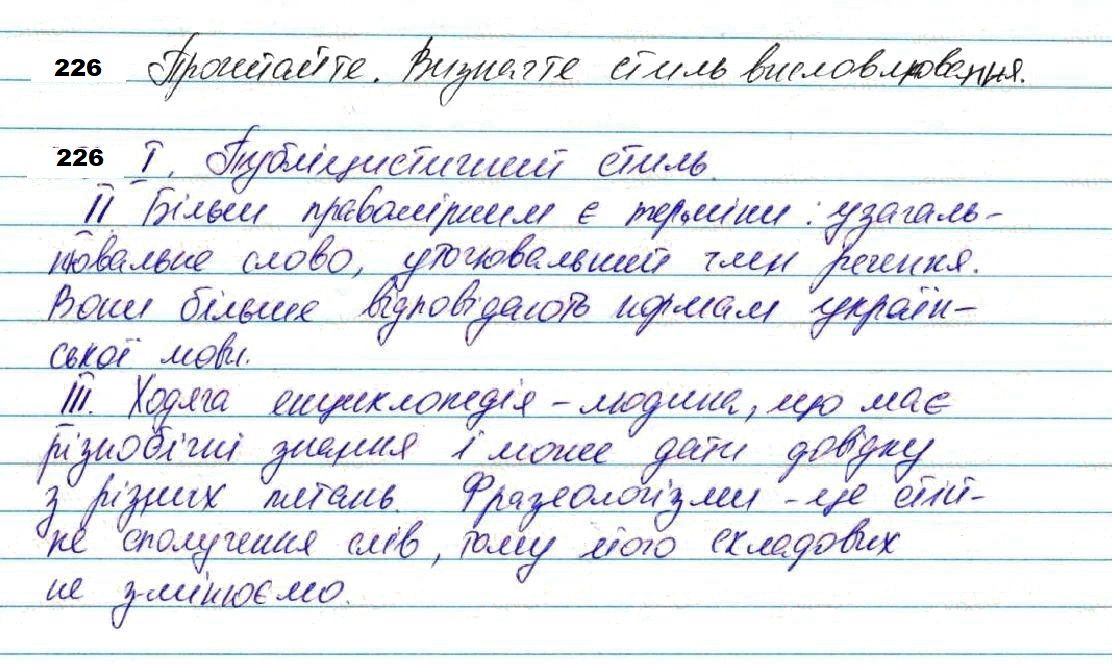 226 Прочитайте. Визначте стиль висловлювання.
226 I. Публіцистичний стиль.
II Більш правомірним є терміни: узагаль-
нювальне слово, уточнювальний член речення.
Вони більше відповідають нормам україн-
ської мови.
III. Ходяча енциклопедія – людина, що має
різнобічні знання і може дати довідку
з різних питань. Фразеологізми – це стій-
не сполучення слів, тому його складових
не змінюємо.